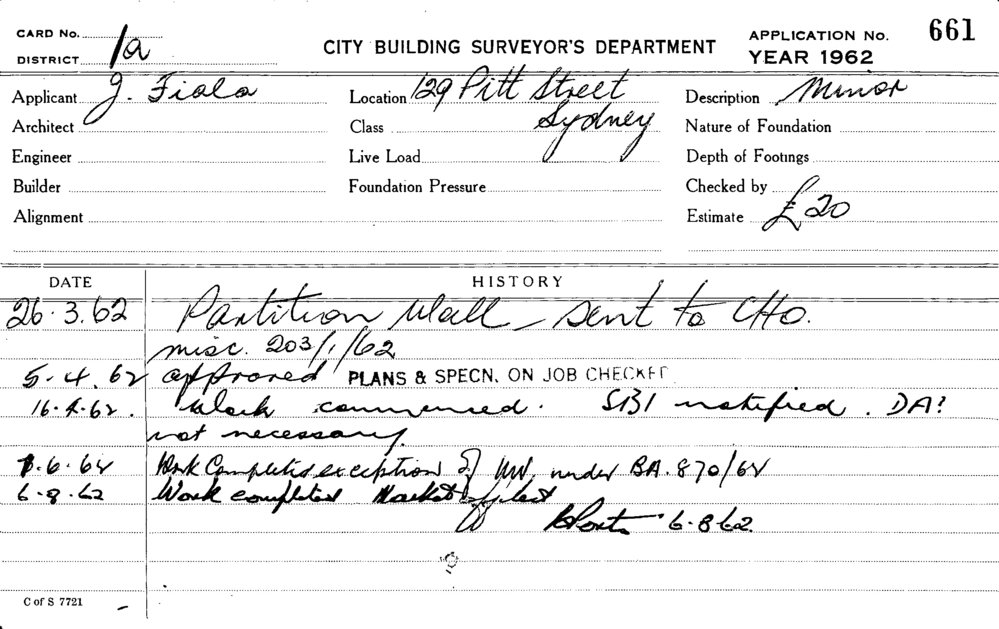 CARD No.
DISTRICT 1a
CITY BUILDING SURVEYOR'S DEPARTMENT
APPLICATION No. 661
YEAR 1962
Applicant J. Fiala
Location 129 Pitt Street
Sydney
Description Minor
Architect
Class
Nature of Foundation
Engineer
Live Load
Depth of Footings
Builder
Foundation Pressure
Checked by
Alignment
Estimate £20
DATE HISTORY
26.3.62 Partition Wall - sent to CHO.
misc. 203/1/62
5.4.62 approved PLANS & SPECN. ON JOB CHECKED
16.4.62. Work commenced. SBI notified. DA?
not necessary.
.6.62 Work Completed exception of under BA. 870/62
6.8.62 Work completed
6.8.62
C of S 7721